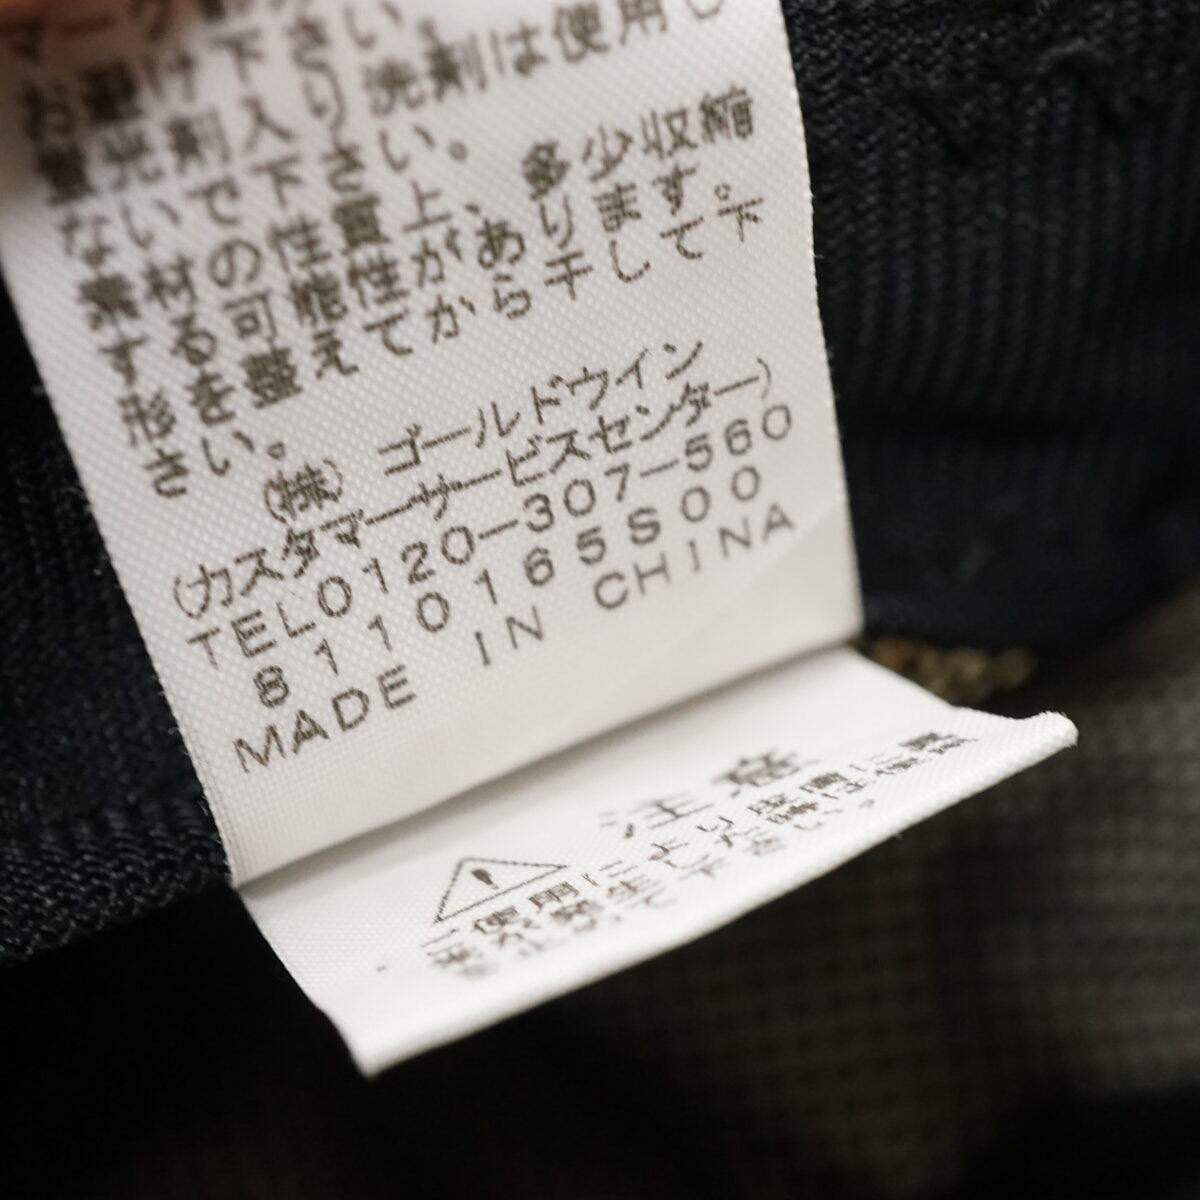 お避け下さい。
蛍光剤入り洗剤は使用し
ない で下さい。
素材の性質上、多少収縮
する可能性があります。
形を整えてから干して下
さい。
(株) ゴールドウイン
(カスタマーサービスセンター)
TEL0120-307-560
8110165S00
MADE IN CHINA
注意
ご使用により皮膚に異